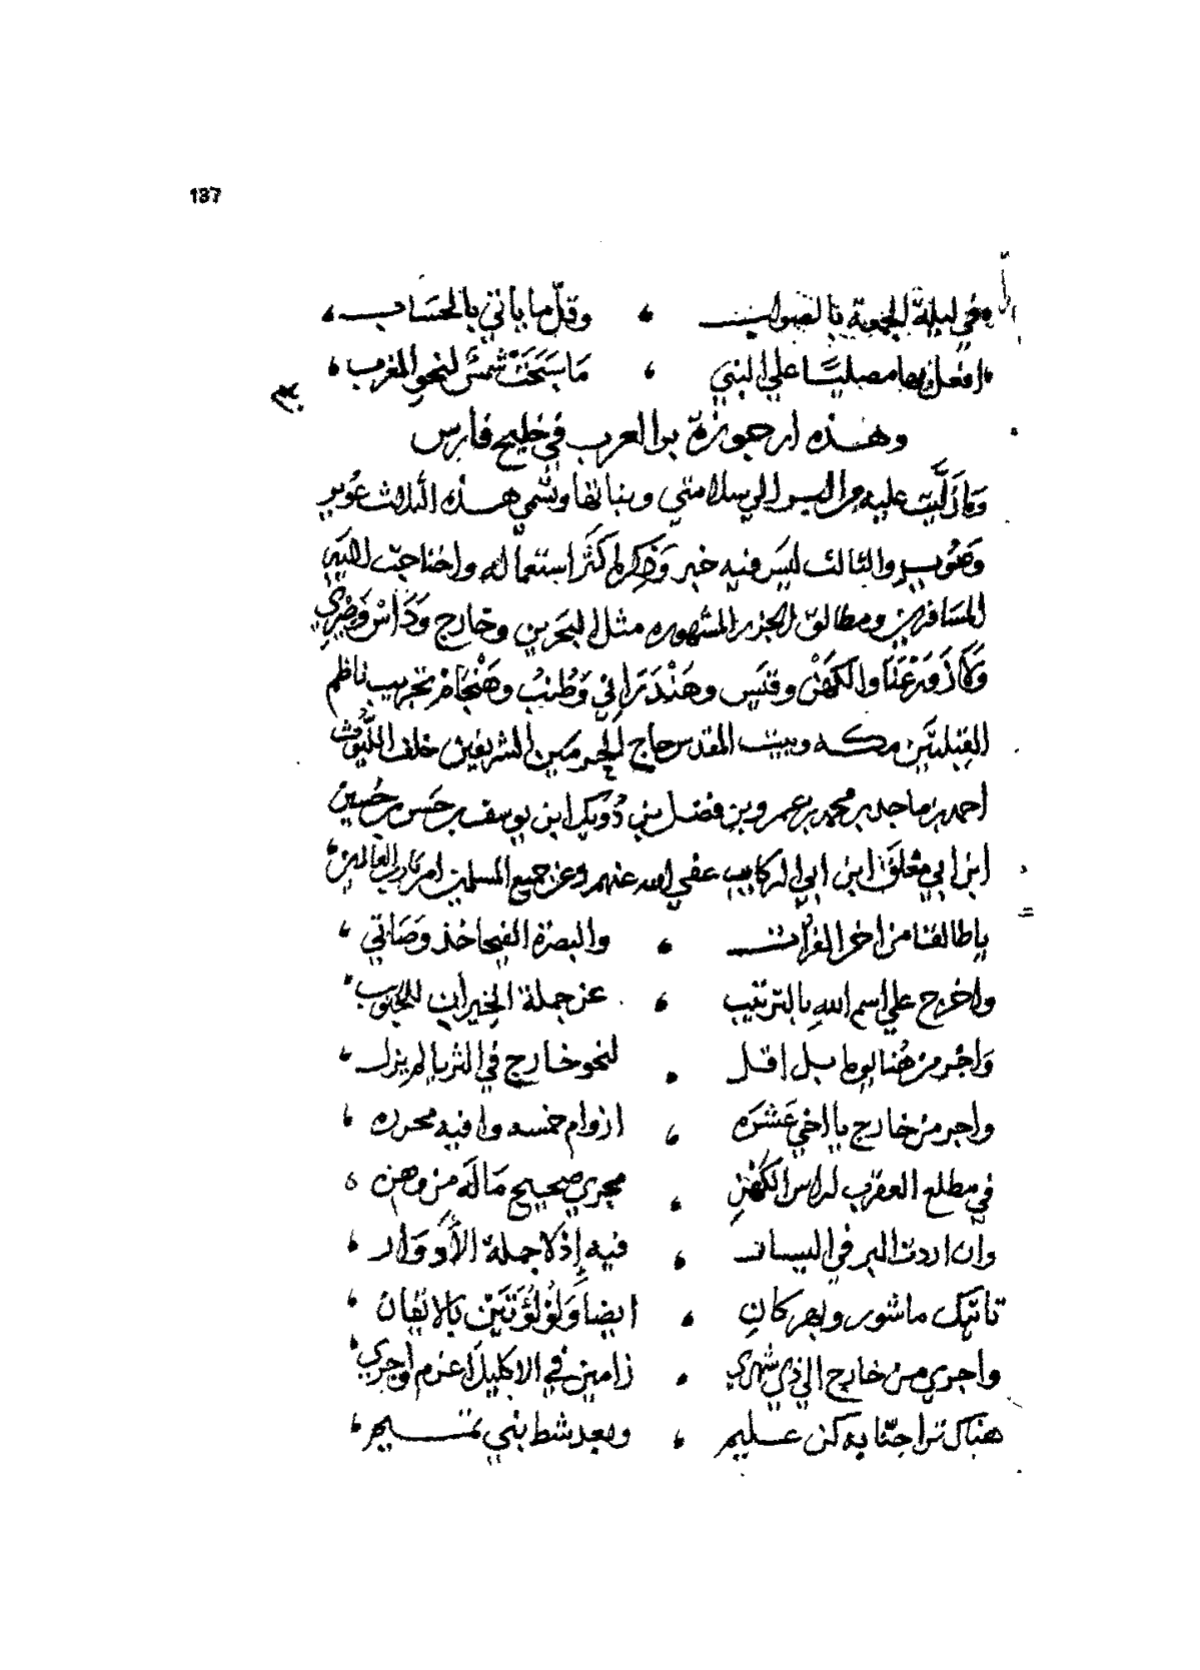 137
في ليلة الجمعة بالصواب ، وقل ما ياتي بالحساب ،
افعل بها مصليًا علي النبي ، ما سبحت شمس لنحو المغرب ،
وهذه ارجوزة بر العرب في خليج فارس
عليه من السلامتي وبناتها وتسمي هذه الثلاث عُوير
وعُوير والثالث ليس فيه خير وَذكر لم كثر استعماله واحتاجت اليه
المسافرين ومطالق الجزر المشهوره مثل البحرين وخارج
والكهن وقيس وهَندَرَابي وَطُنب وهَنْجَام تجريب ناظم
القبلتين مكه وبيت المقدس حاج الحرمين الشريفين خلف الليوث
احمد بن ماجد بن محمد بن عمرو بن فضل بن دُويك ابن يوسف بن حَسن بن حُسين
ابن ابي مَعْلَق ابن ابي الركايب عفي الله عنهم وعن جميع المسلمين امين رب العالمين
يا طالقا من اخر الفرات ، والبصرة الفيحا خذ وصَاتي ،
واخرج علي اسم الله بالترتيب ، عن جملة الخيران للجنوب ،
وَاجْر من هُنا يوما بل اقل ، لنحو خارج في الثريا لم يزل ،
واجر من خارج يا اخي عَشَره ، ازوام خمسه وافيه محرره ،
في مطلع العقرب لراس الكهْنِ ، مجري صحيح مَا لَه من وهن ،
وان اردت البر في البيسان ، فيه إذًا جملة الأدوار ،
تاتيك ماشور وبهركانِ ، ايضًا وَلُؤلُؤتَين بالاتقان ،
واجري من خارج الذي شهري ، زامين في الاكليل اعزم واجري ،
هناك ترا به كن عليم ، وبعد شط بني تميم ،